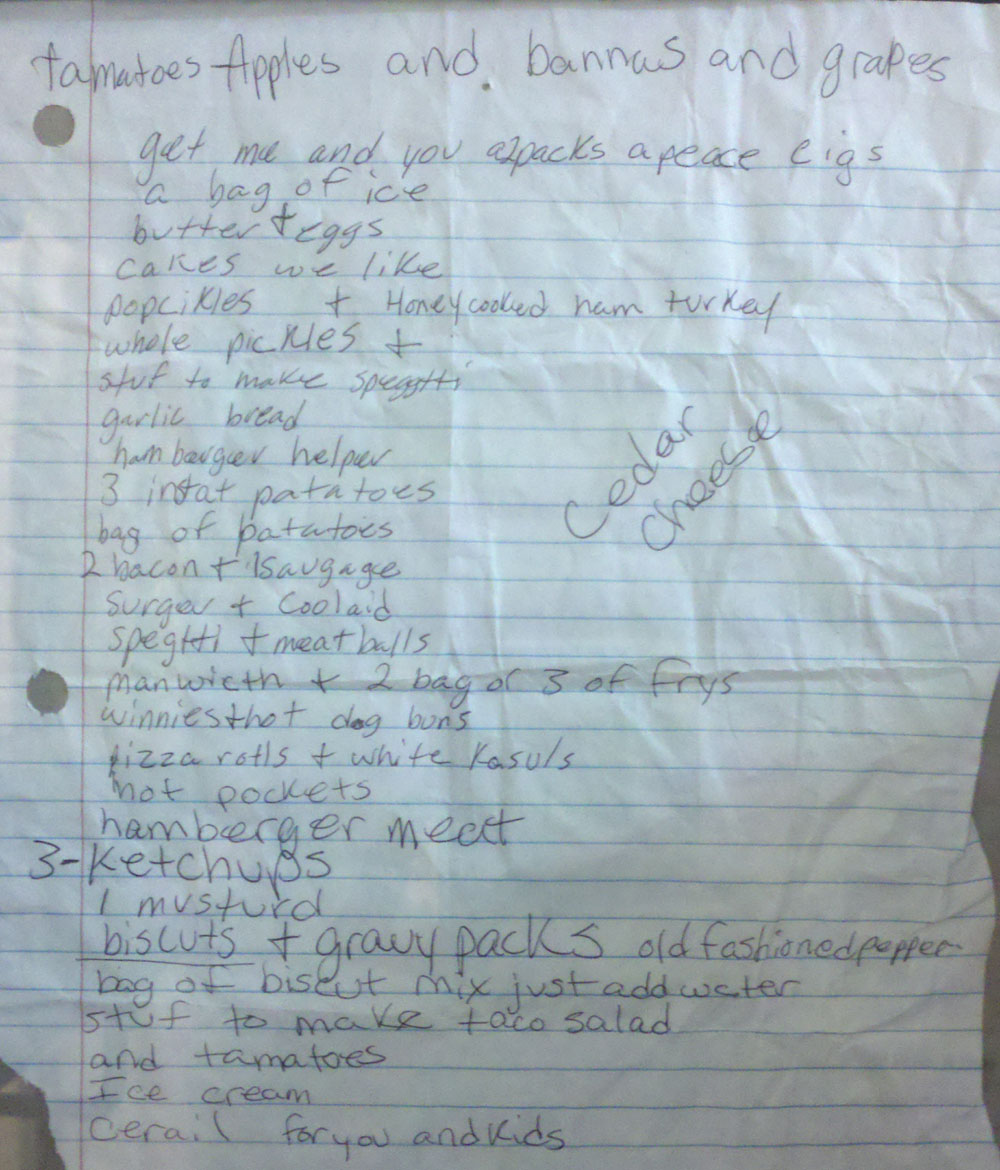 tamatoes Apples and bannas and grapes
get me and you a2packs apeace cigs
a bag of ice
butter + eggs
cakes we like
popcikles + Honeycooked ham turkey
whole pickles +
stuf to make speggtti
garlic bread
Cedar
cheese
hamberger helper
3 intat patatoes
bag of patatoes
2 bacon + 1 Saugage
Surger + Coolaid
spegtti + meatballs
manwicth + 2 bag or 3 of frys
winnies + hot dog buns
pizza rolls + white kasuls
hot pockets
hamberger meat
3-Ketchups
1 musturd
biscuts + gravy packs old fashioned pepper
bag of biscut mix just add water
stuf to make taco salad
and tamatoes
Ice cream
Cerail for you and kids